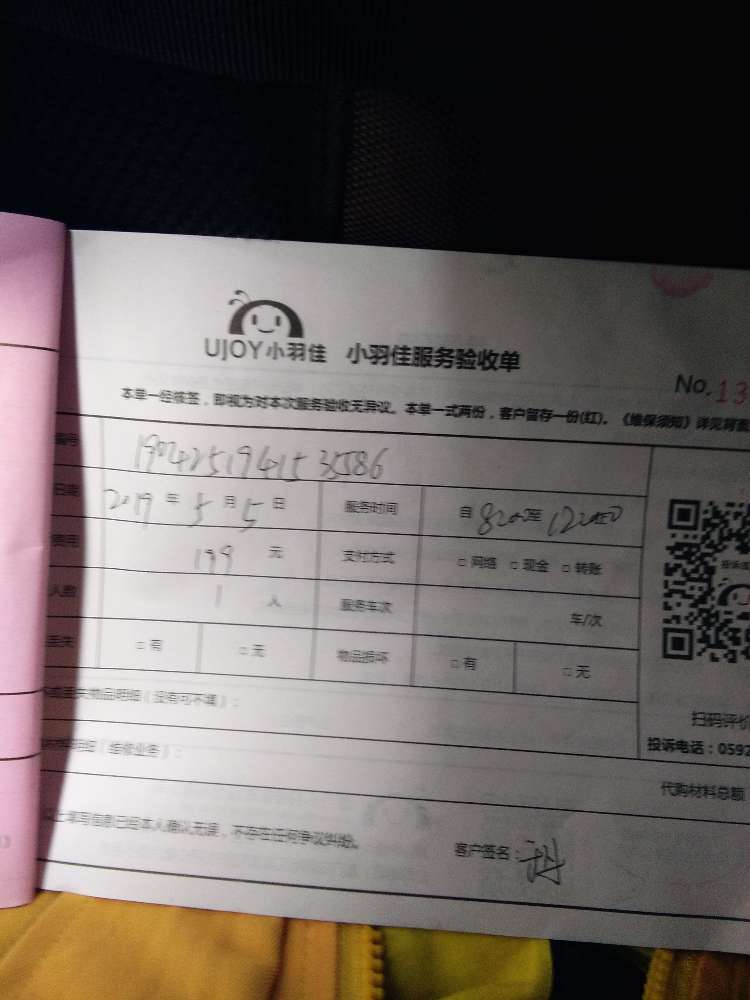 UJOY小羽佳 小羽佳服务验收单
No.13
本单一经核签，即视为对本次服务验收无异议。本单一式两份，客户留存一份(红)。《维保须知》详见背面
编号 190425194153586
日期 2019 年 5 月 5 日 服务时间 自 8:00 至 12:00
费用 199 元 支付方式 □ 网络 □ 现金 □ 转账
人数 1 人 服务车次 车/次
丢失 □ 有 □ 无 物品损坏 □ 有 □ 无
坏或丢失物品明细（没有可不填）：
明细（维修业务）：
扫码评价
投诉电话：0592
代购材料总额
以上填写信息已经本人确认无误，不存在任何争议纠纷。
客户签名：